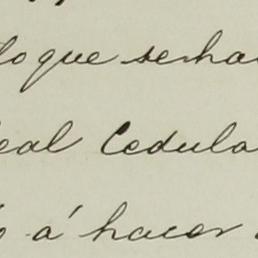 lo que se ha
eal Cedula
ó á hacer